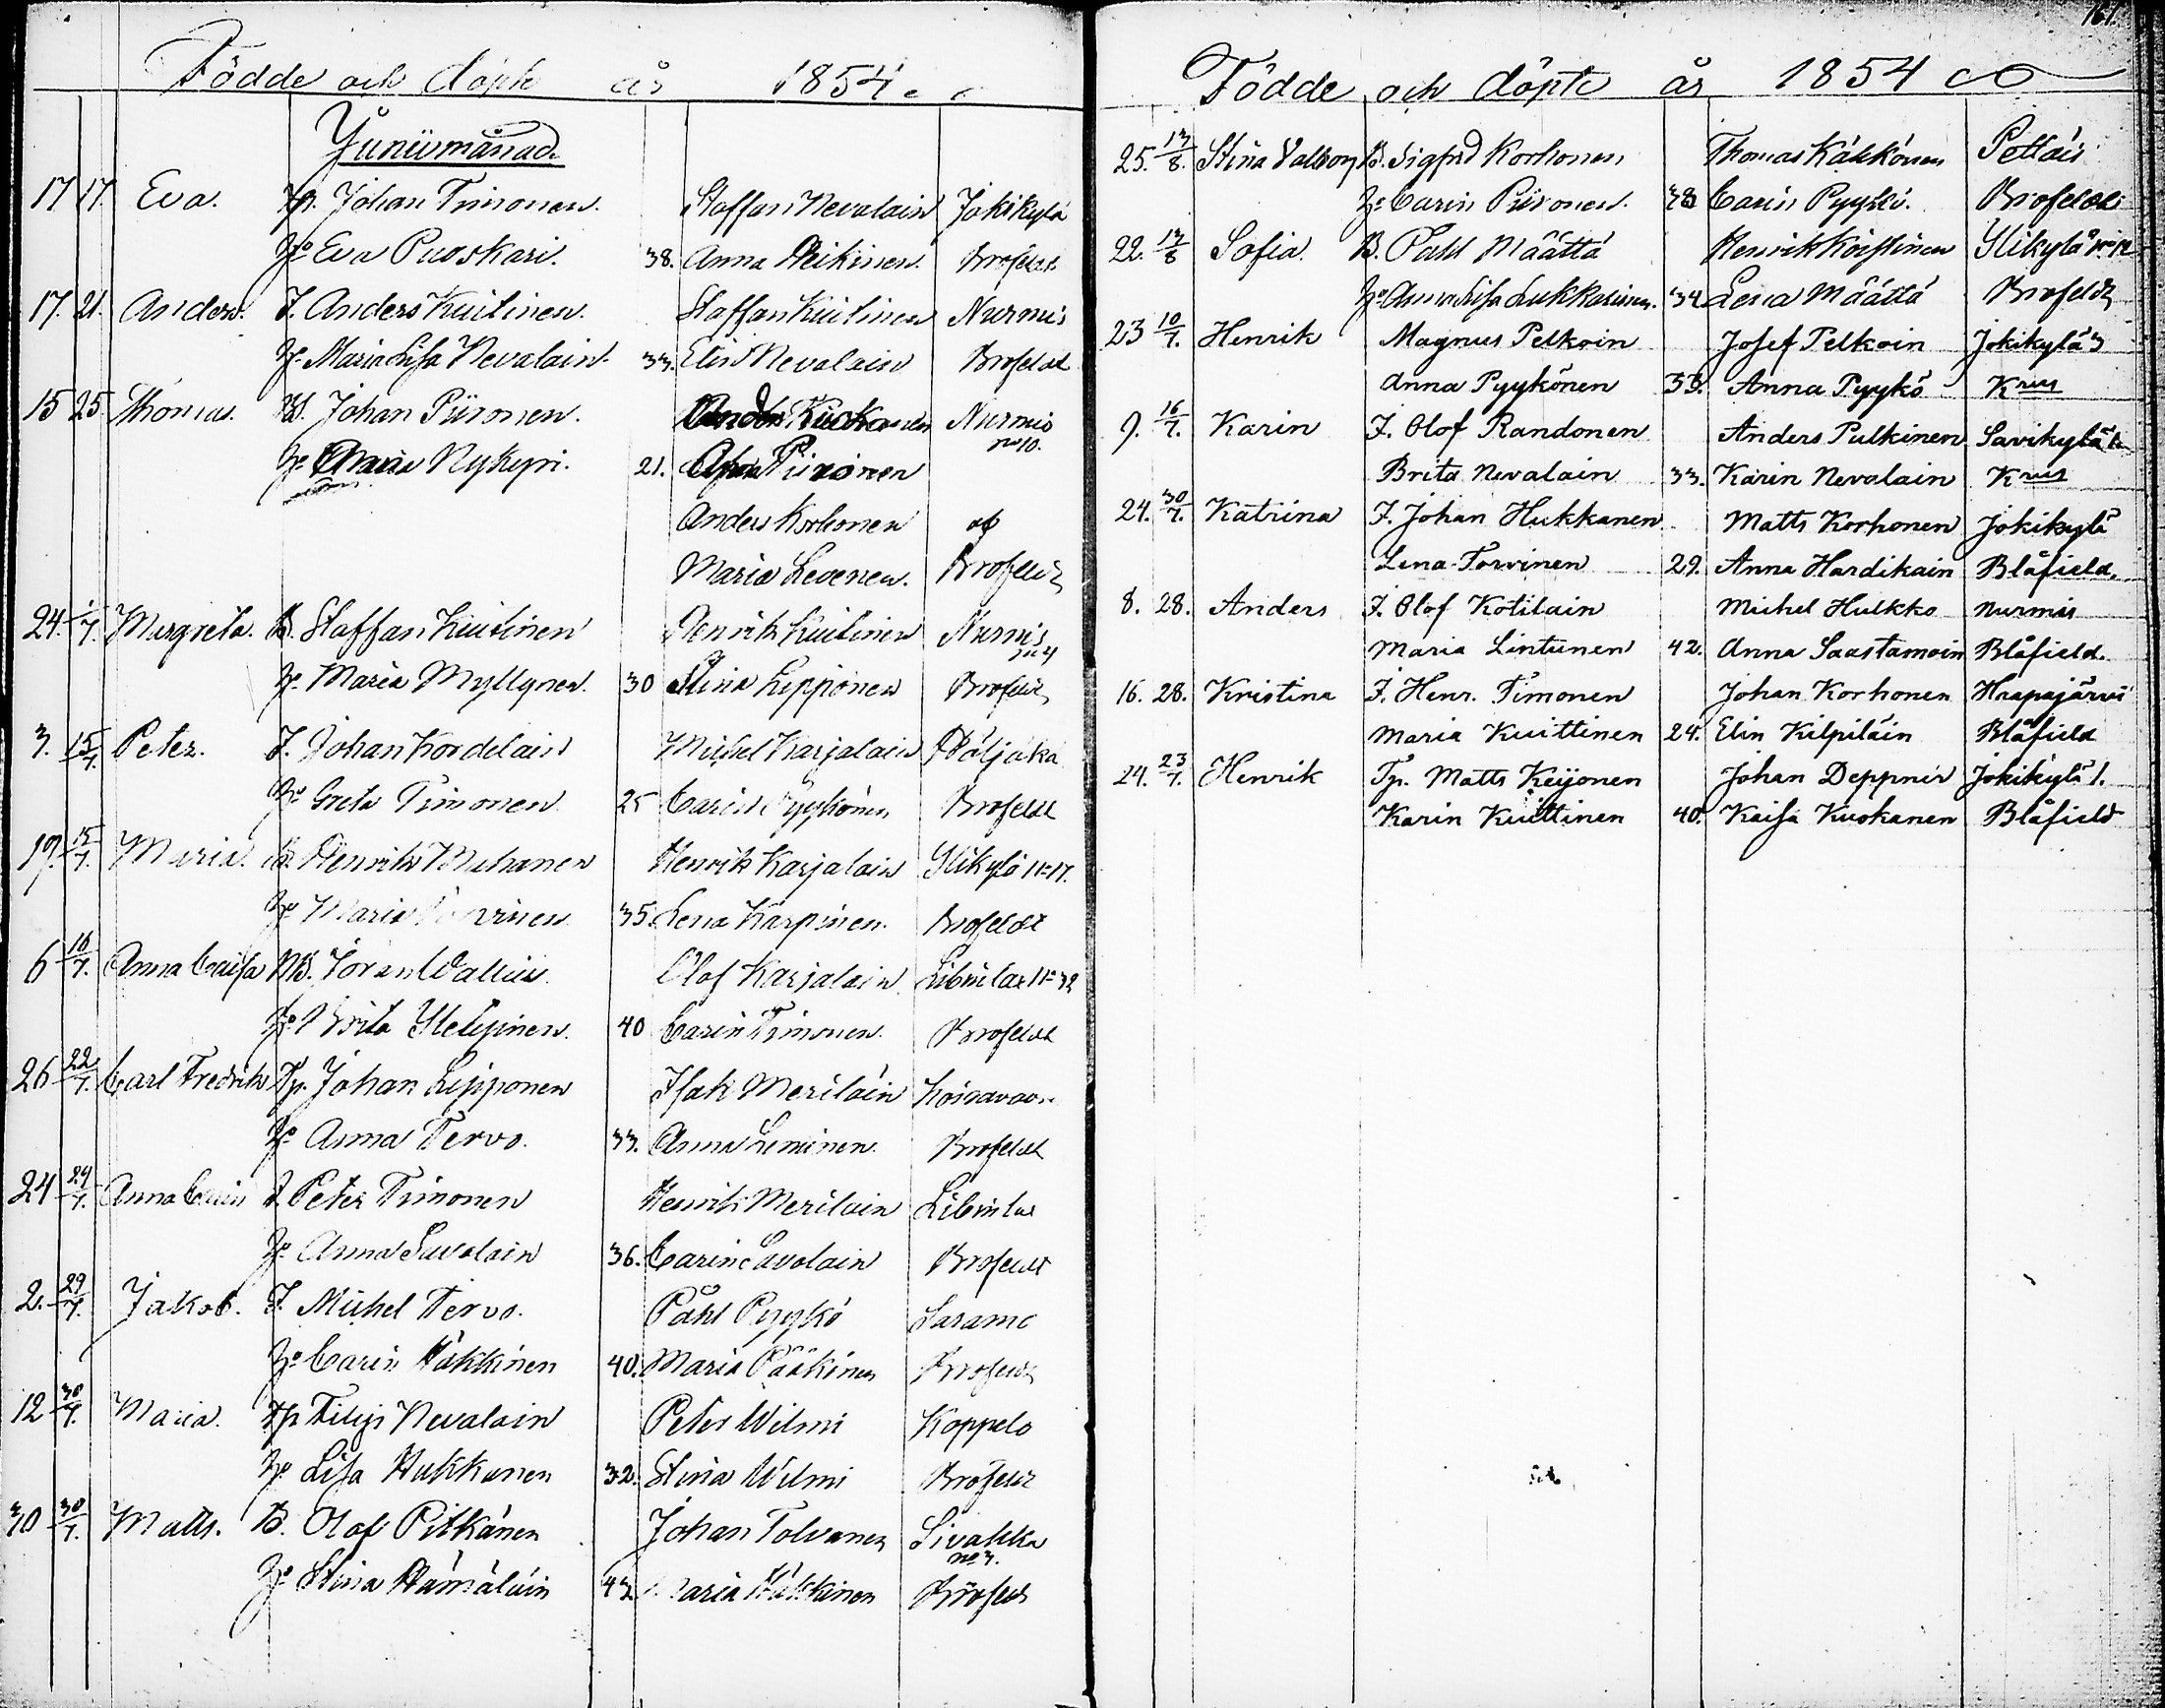 Födde och döpte år 1854
Junii månad
17 17. Eva. Tp. Johan Timonen. Staffan Nevalain Jokikylä
Ho Eva Puoskari. 38. Anna Heikinen. Brofeldt
17. 21. Anders. I. Anders Kuitinen. Staffan Kuitinen Nurmis
Ho Maria Lisa Nevalain. 33. Elin Nevalain Brofeldt
15 25. Thomas. Johan Piironen. Nurmis no 10.
Ho Maria Nykyri. 21. Piironen
Anders Korhonen af
Maria Levenen. Brofeldt
24. 1/7. Margreta. B. Staffan Kuitinen Henrik Kuitinen Nurmis no 4
Ho Maria Myllynen. 30 Stina Lipponen Brofeldt
3. 15/7. Peter. I. Johan Kordelain Michel Karjalain
Ho Greta Timonen 25 Carin Pyykönen Brofeldt
19. 15/7. Maria. B. Henrik Muhanen Henrik Karjalain Ylikylä no 17.
Ho Maria 35. Lena Karpinen. Brofeldt
6 16/7. Anna Caisa Jöran Wallius. Olof Karjalain no 32
Ho Brita 40 Carin Timonen. Brofeldt
26 22/7. Carl Fredrik Tp. Johan Lipponen Isak Meriläin
Ho Anna Tervo. 33. Anna Leminen. Brofeldt
24 24/7. Anna Carin I Peter Timonen Henrik Meriläin
Ho Anna Savolain 36. Carin Savolain Brofeldt
2. 29/7. Jakob. I. Michel Tervo. Påhl Pyykö Saramo
Ho Carin Häkkinen 40. Maria Pääkinen Brofeldt
12 30/7. Maria. Tp Filip Nevalain Peter Wilmi Koppelo
Ho Lisa Hukkanen 32. Stina Wilmi Brofeldt
30 30/7. Matts. B. Olof Pitkänen Johan Tolvanen Sivakka no 3.
Ho Stina Hämäläin 42 Maria Häkkinen Brofeldt
161.
Födde och döpte år 1854
25. 13/8. Stina Valborg B. Sigfrid Korhonen Thomas Käkkönen Pettäis
Ho Carin Piironen. 28 Carin Pyykö. Brofeldt
22. 13/8 Sofia. B. Påhl Määttä Henrik Koistinen Ylikylä no 12
Ho Anna Lisa Lukkarinen. 34. Lena Määttä Brofeldt
23 10/7. Henrik Magnus Pelkoin Josef Pelkoin Jokikylä 3
Anna Pyykönen 33. Anna Pyykö Krus
9. 16/7. Karin I. Olof Randonen Anders Pulkinen Savikylä
Brita Nevalain 33. Karin Nevalain Krus
24. 30/7. Katrina I. Johan Hukkanen Matts Korhonen Jokikylä
Lena Torvinen 29. Anna Hardikain Blåfield.
8. 28. Anders I. Olof Kotilain Michel Hulkko Nurmis
Maria Lintunen 42. Anna Saastamoin Blåfield.
16. 28. Kristina I. Henr. Timonen Johan Korhonen Haapajärvi
Maria Kuittinen 24. Elin Kilpiläin Blåfield
24. 23/7. Henrik Tp. Matts Keijonen Johan Deppner Jokikylä 1.
Karin Kuittinen 40. Kaisa Kuokanen Blåfield